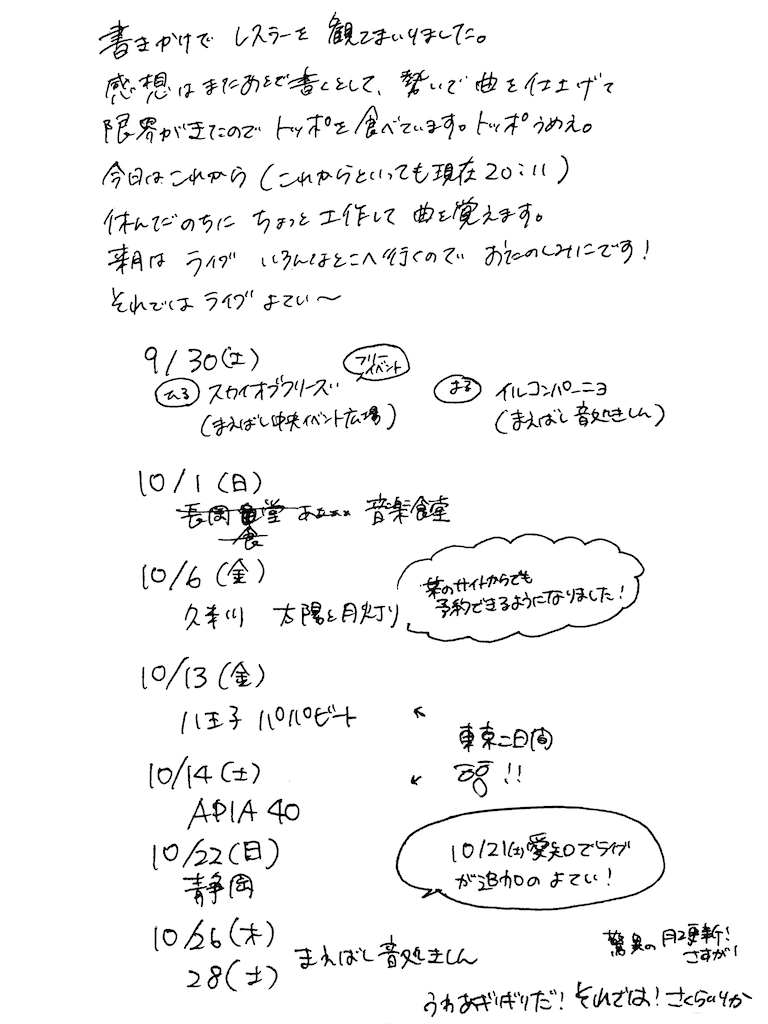 書きかけで レスラーを 観てまいりました。
感想はまたあとで書くとして、勢いで曲を仕上げて
限界がきたので トッポを食べています。トッポうめえ。
今日はこれから(これからといっても現在20:11)
休んだのちに ちょっと工作して 曲を覚えます。
来月は ライブ いろんなとこへ行くので おたのしみにです!
それでは ライブ よてい〜
9/30(土)
ひる スカイオブブリーズ フリーイベント
(まえばし中央イベント広場)
よる イルコンパーニョ
(まえばし 音処きしん)
10/1(日)
長岡食堂 あぁ 音楽食堂
10/6(金)
久米川 太陽と月灯り
某のサイトからでも
予約できるようになりました!
10/13(金)
八王子 パパビート
東京二日間
!!
10/14(土)
APIA 40
10/22(日)
静岡
10/21(土)愛知でライブ
が追加のよてい!
10/26(木)
28(土) まえばし 音処きしん
驚異の 月2更新!
さすが!
うわあぎりぎりだ! それでは! さくらいりか